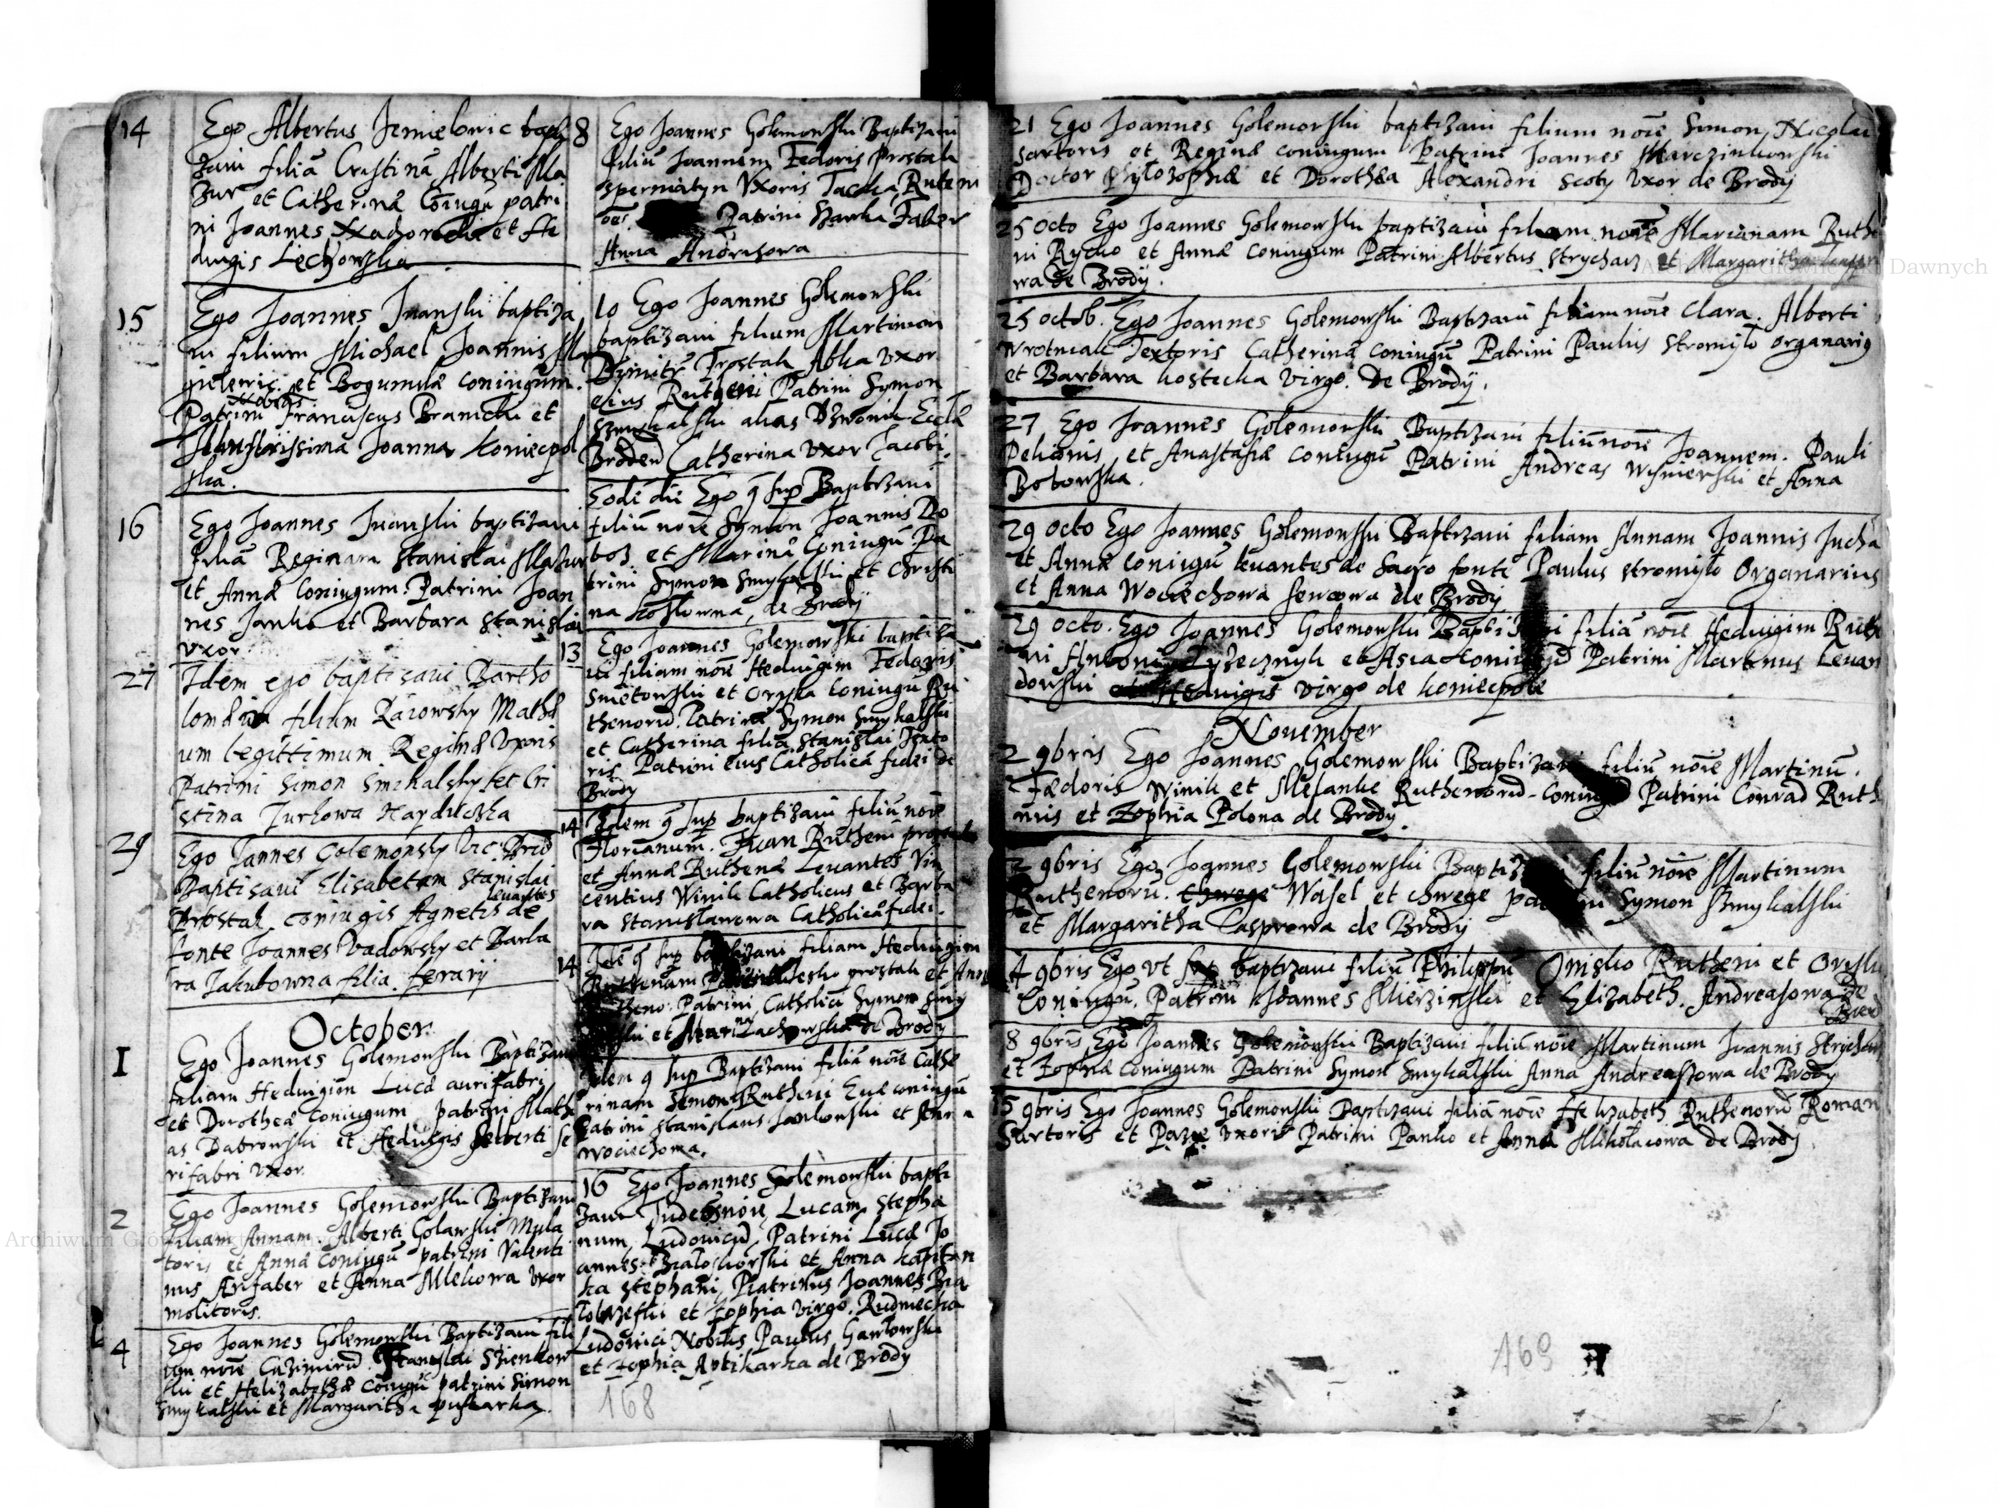 14 Ego Albertus Jemielowic bapti
zavi filiã Cristinã Alberti Ma
zur et Catherinæ Coniugũ patri
ni Joannes et He
duigis Lechowska
15 Ego Joannes Iwanski baptiza
vi filium Michael Joannis Ma
gielewic et Bogumilæ coniugum.
Patrini Nobilis Franciscus Branicki et
Illustrissima Joanna koniecpol
ska.
16 Ego Joannes Iwanski baptizavi
filiã Reginam Stanislai Mazur
et Annæ coniugum. Patrini Joan
nes Janko et Barbara Stanislai
vxor
27 Idem ego baptisavi Bartho
lomæum filium Razowsky Mathæ
um legittimum Reginæ vxoris
Patrini Simon Smikalsky et Cri
stina Jurkowa Hayduczka
29 Ego Joannes Golemowsky Vic: Brod
Baptisavi Elisabetam Stanislai
Prostak coniugis Agnetis levantes de
fonte Joannes Vadowsky et Barba
ra Jakubowna filia ferarij
October.
1 Ego Joannes Golemowski Baptizavi
filiam Heduigim Lucæ aurifabri
et Dorotheæ coniugum patrini Math
as Dabrowski et Heduigis Alberti se
rifabri vxor.
2 Ego Joannes Golemowski Baptizavi
filiam Annam Alberti Golawski Mula
toris et Annæ coniugũ patrini Valenti
nus Arifaber et Anna Mlekowa vxor
molitoris.
4 Ego Joannes Golemowski Baptizavi fili
um noĩe Cazimirũ Stanislai Szienkow
ski et Helizabethæ coniugũ patrini Simon
Smykalski et Margaritha puskarka
8 Ego Joannes Golemowski Baptizavi
filiũ Joannem Fedoris prostak
spermatyn Vxoris Tacka Ruteni
Patrini Szawka Faber
Anna Andrisowa
10 Ego Joannes Golemowski
baptizavi filium Martinum
Dimitr Prostak Abka vxor
eius Rutheni Patrini Symon
Szmykalski alias Dzwonik Ecclæ
Broden Catherina vxor Jacobi.
Eodẽ die Ego q̃ sup Baptizavi
filiũ noĩe Symon Joannis Do
bosz et Marinæ Coniugũ Pa
trini Symon Smykalski et Christi
na Kozlowna, de Brody
13 Ego Joannes Golemowski baptiza
vi filiam noĩe Heduigim Fedoris
Smetowski et Oryska Coniugũ Ru
thenorũ. Patrini Symon Smykalski
et Catherina filia Stanislai Texto
ris Patrini eius Catholicæ fidei de
Brody
14 Idem q̃ sup baptizavi filiũ noĩe
Florianum. Iwan Rutheni prostak
et Annæ Ruthenæ Levantes Vin
centius Winik Catholicus et Barba
ra Stanislawowa Catholicæ fidei.
14 Idẽ q̃ sup baptizavi filiam Heduigim
Ruthenam Lesko prostak et Anna
Patrini Catholici Symon Smy
kalski et Marina Lachowska de Brody
Idem q̃ sup Baptizavi filiã noĩe Cathe
rinam Semon Rutheni Euæ coniugũ
Patrini Stanislaus Jankowski et Anna
Wociechowa.
16 Ego Joannes Golemowski bapti
zavi Judeos noĩe Lucam Stepha
num Ludovicũ. Patrini Lucæ Jo
annes Bialokorski et Anna kapitan
ka Stephani, Patrinus Joannes Bia
lobrzeski et Zophia virgo. Rudniecka
Ludovici Nobilis Paulus Gawlowski
et Zophia Aptikarka de Brody
168
21 Ego Joannes Golemowski baptizavi filium noĩe Simon, Nicolai
Sartoris et Reginæ coniugum Patrini Joannes Marczinkowski
Doctor Phylozophiæ et Dorothea Alexandri Scoty vxor de Brody
25 octo Ego Joannes Golemowski baptizavi filiam noĩe Mariannam Ruthe
ni Rycko et Annæ Coniugum Patrini Albertus Strycharz et Margaritha
wa de Brody.
25 octob. Ego Joannes Golemowski Baptizavi filiam noĩe Clara. Alberti
Wrotniak Textoris Catherinæ coniugũ Patrini Paulus Stromiło organarius
et Barbara kostecka virgo. De Brody.
27 Ego Joannes Golemowski Baptizavi filiũ noĩe Joannem. Pauli
Pelionis et Anastasiæ coniugũ Patrini Andreas Wisniewski et Anna
Botowska.
29 octo Ego Joannes Golemowski Baptizavi filiam Annam Joannis Jucha
et Annæ Coniugũ levantes de Sacro fonte Paulus Stromiło Organarius
et Anna Wociechowa sewcowa de Brody
29 octo. Ego Joannes Golemowski Baptizavi filiã noĩe Heduigim Ruthe
ni Antoni Lyzecznyk et Asia coniugũ Patrini Martinus Levan
dowski et Heduigis virgo de koniecpole
November
2 9bris Ego Joannes Golemowski Baptizavi filiũ noĩe Martinũ.
Fædoris Winik et Melanke Ruthenorũ coniugũ Patrini Conrad Ruth
nus et Zophia Polona de Brody.
2 9bris Ego Joannes Golemowski Baptizavi filiũ noĩe Martinum
Ruthenorũ. Wasel et chwege patrini Symon Smykalski
et Margaritha Casprowa de Brody
4 9bris Ego vt sup baptizavi filiũ Philippũ Onisko Rutheni et Orysku
Coniugũ. Patrini Joannes Mierzinski et Elizabeth. Andreasowa de
Brod
8 9bris Ego Joannes Golemowski Baptizavi filiũ noĩe Martinum Joannis Strychar
et Zophiæ coniugum Patrini Symon Smykalski Anna Andreassowa de Brody
15 9bris Ego Joannes Golemowski Baptizavi filiã noĩe Helizabeth Ruthenorũ Roman
Sartoris et Pazie vxoris Patrini Panko et Anna Mikołaiowa de Brody.
169